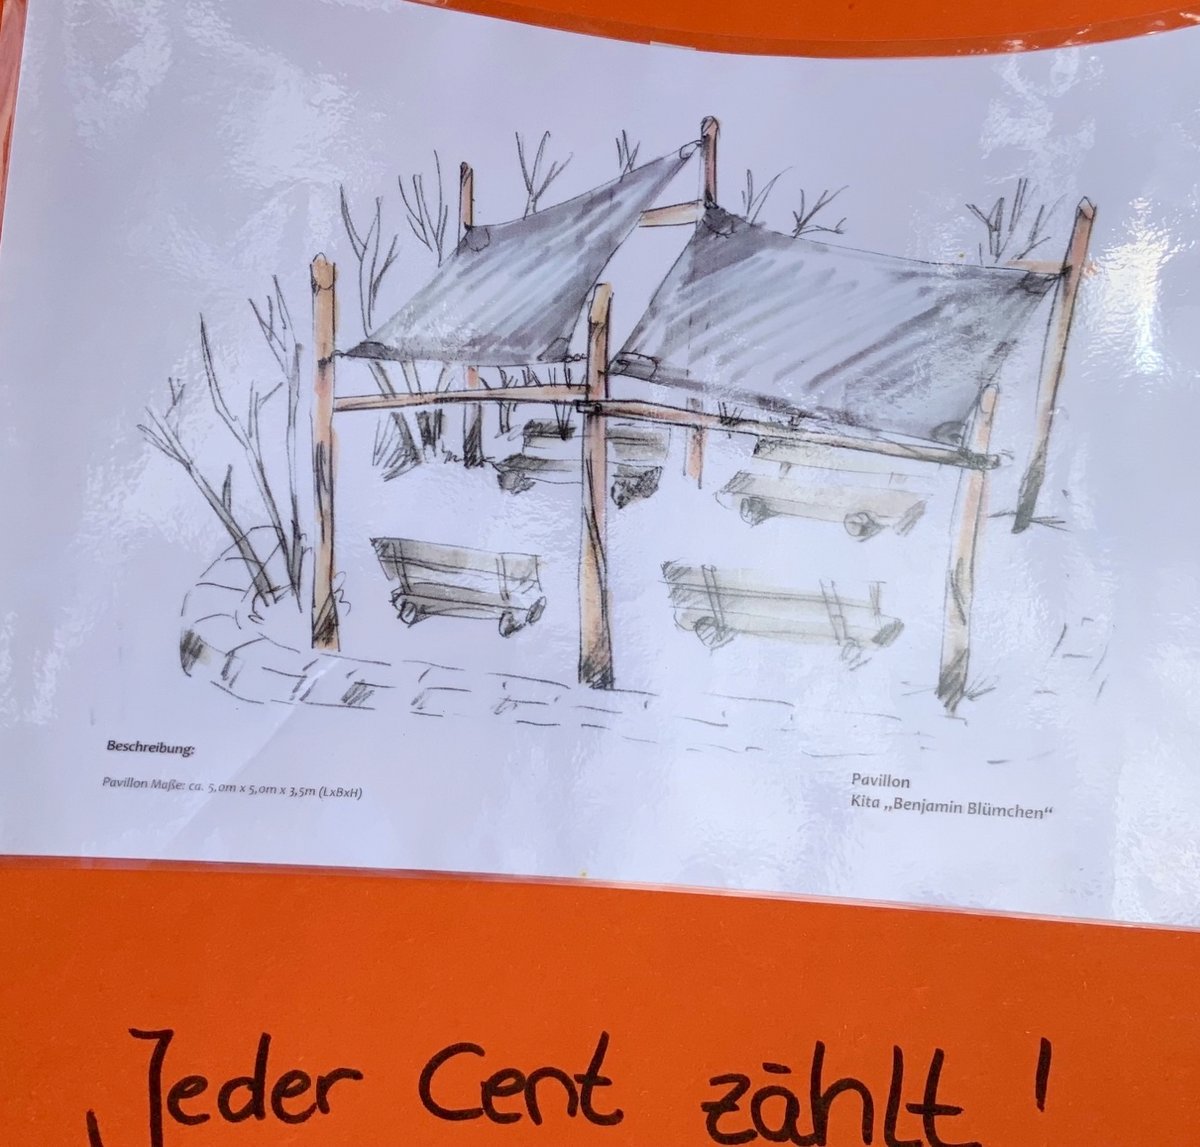 Beschreibung:
Pavillon Maße: ca. 5,0m x 5,0m x 3,5m (LxBxH)
Pavillon
Kita „Benjamin Blümchen“
„Jeder Cent zählt!